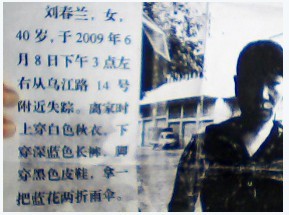 刘春兰，女，
40岁，于2009年6
月8日下午3点左
右从乌江路14号
附近失踪。离家时
上穿白色秋衣，下
穿深蓝色长裤，脚
穿黑色皮鞋，拿一
把蓝花两折雨伞。